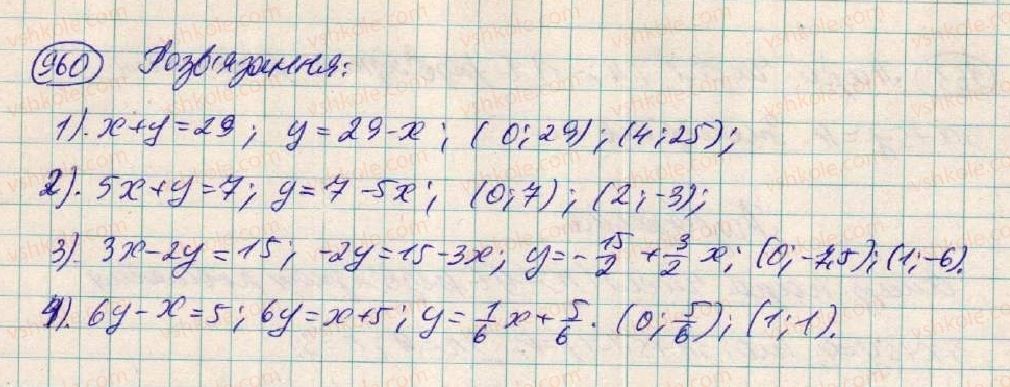 960 Розв'язання:
1). x+y=29; y=29-x; (0;29); (4;25);
2). 5x+y=7; y=7-5x; (0;7); (2;-3);
3). 3x-2y=15; -2y=15-3x; y=-15/2+3/2x; (0;-7,5); (1;-6).
4). 6y-x=5; 6y=x+5; y=1/6x+5/6. (0;5/6); (1;1).